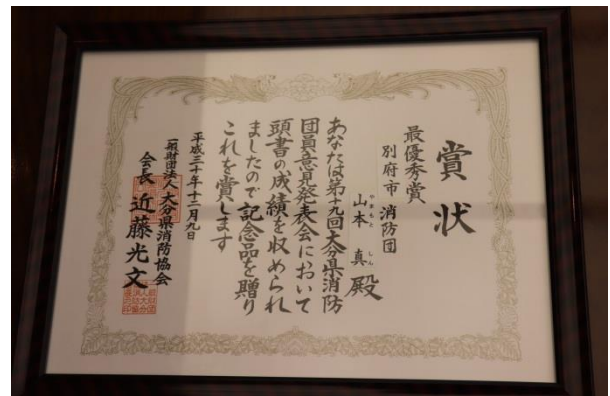 賞状
最優秀賞
別府市 消防団
山本 真 殿
やまもと しん
あなたは第十九回大分県消防
団員意見発表会において
頭書の成績を収められ
ましたので記念品を贈り
これを賞します
平成三十年十二月九日
一般財団法人 大分県消防協会
会長 近藤光文